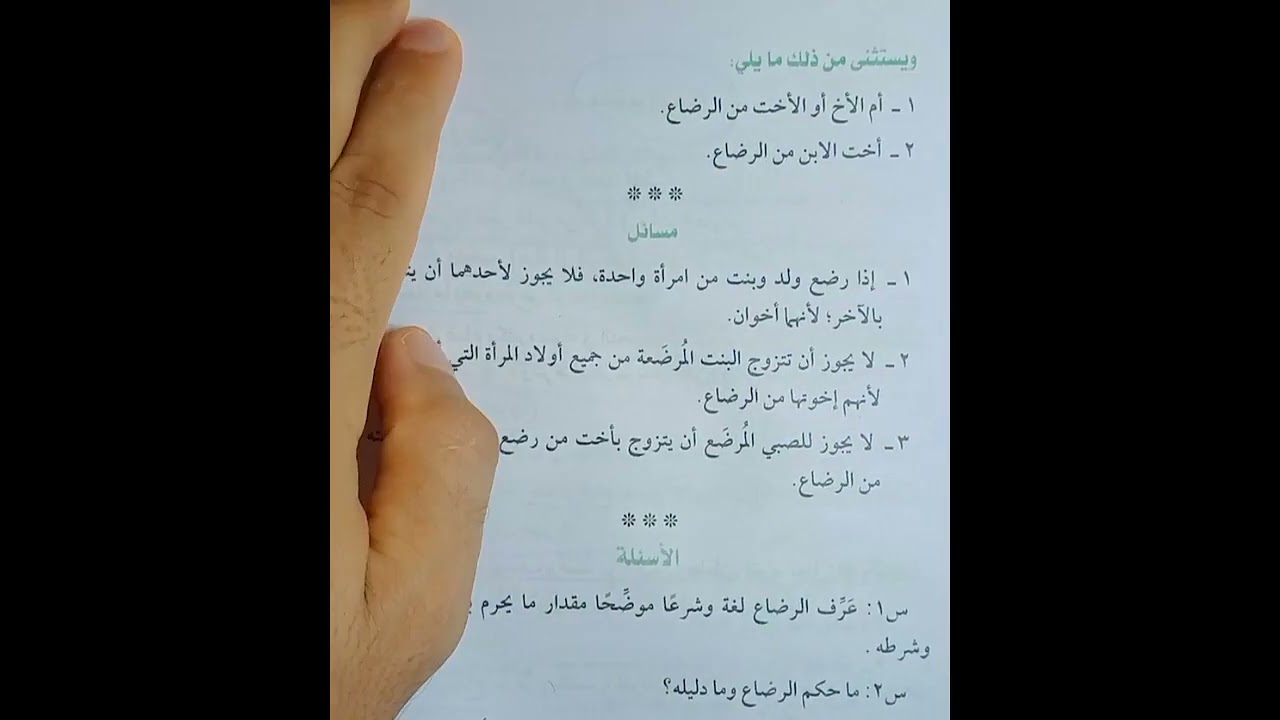 ويستثنى من ذلك ما يلي:
١ ـ أم الأخ أو الأخت من الرضاع.
٢ ـ أخت الابن من الرضاع.
❊ ❊ ❊
مسائل
١ ـ إذا رضع ولد وبنت من امرأة واحدة، فلا يجوز لأحدهما أن
بالآخر؛ لأنهما أخوان.
٢ ـ لا يجوز أن تتزوج البنت المُرضَعة من جميع أولاد المرأة التي
لأنهم إخوتها من الرضاع.
٣ ـ لا يجوز للصبي المُرضَع أن يتزوج بأخت من رضع
من الرضاع.
❊ ❊ ❊
الأسئلة
س١: عَرِّف الرضاع لغة وشرعًا موضِّحًا مقدار ما يحرم
وشرطه .
س٢: ما حكم الرضاع وما دليله؟